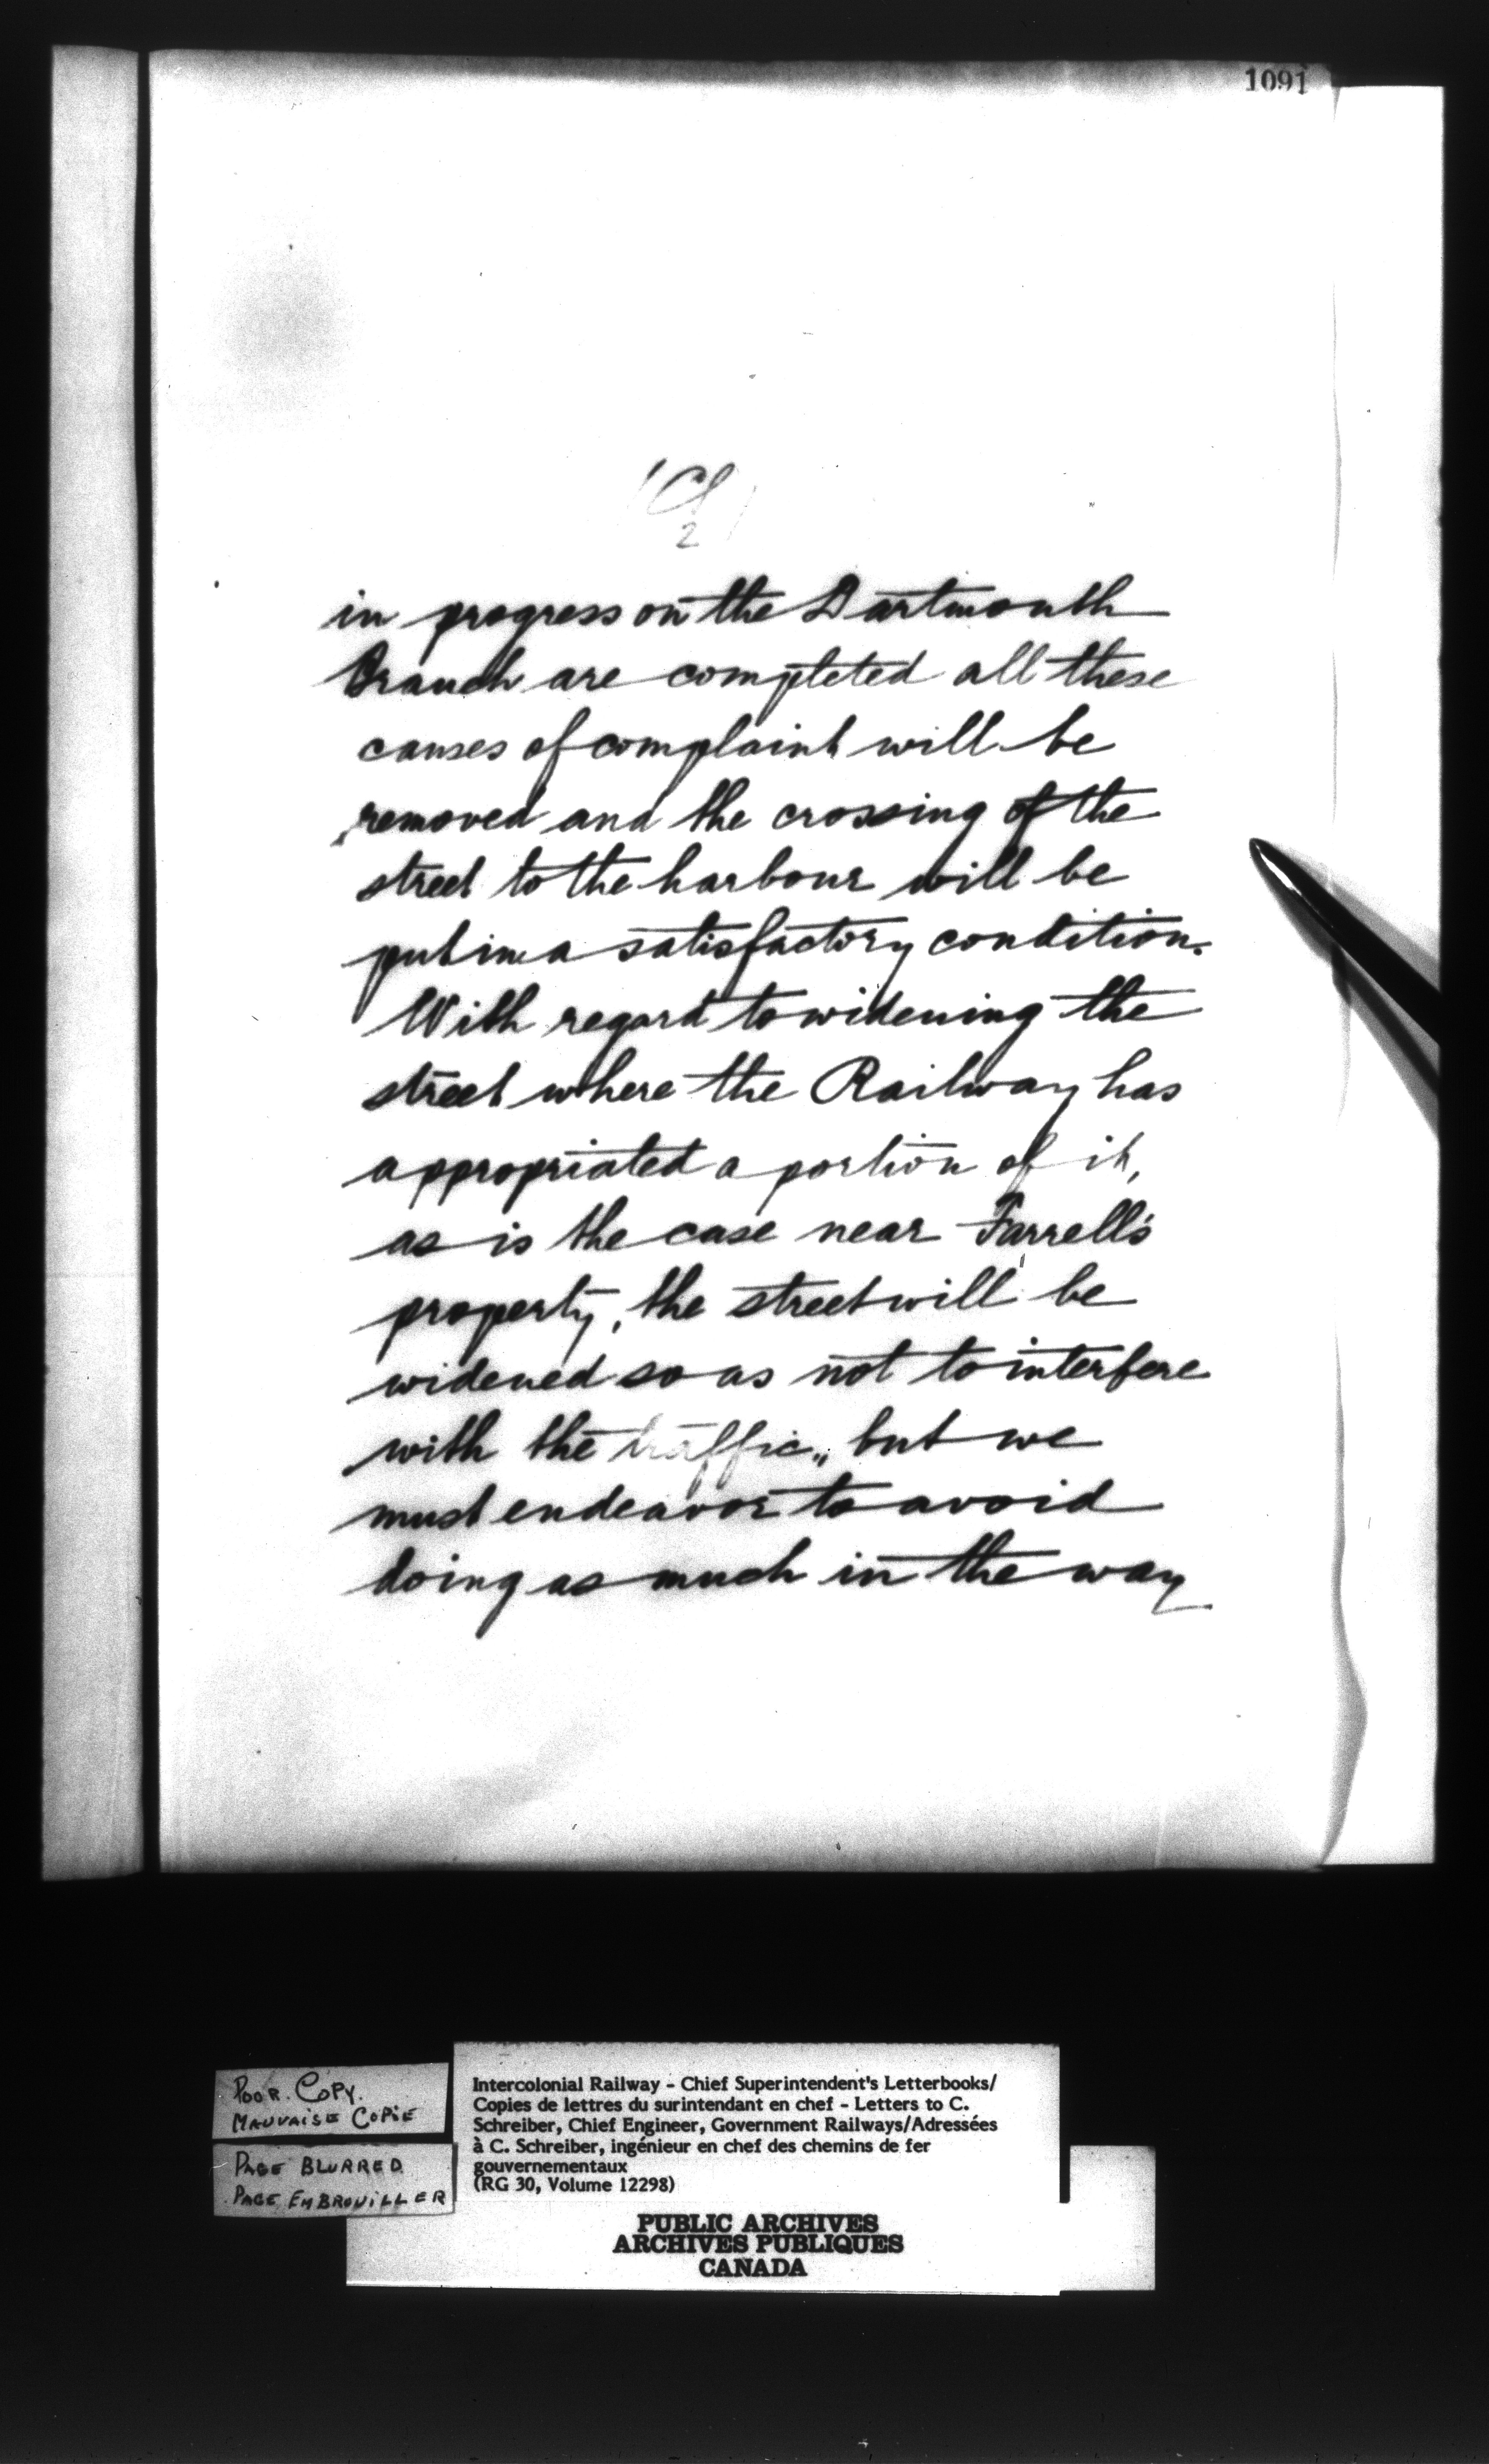 1091
2
in progress on the Dartmouth
Branch are completed all these
causes of complaint will be
removed and the crossing of the
street to the harbour will be
put in a satisfactory condition.
With regard to widening the
street where the Railway has
appropriated a portion of it,
as is the case near Farrell's
property, the street will be
widened so as not to interfere
with the traffic, but we
must endeavor to avoid
doing as much in the way
POOR COPY.
MAUVAISE COPIE
PAGE BLURRED
PAGE EMBROUILLER
Intercolonial Railway - Chief Superintendent's Letterbooks/
Copies de lettres du surintendant en chef - Letters to C.
Schreiber, Chief Engineer, Government Railways/Adressées
à C. Schreiber, ingénieur en chef des chemins de fer
gouvernementaux
(RG 30, Volume 12298)
PUBLIC ARCHIVES
ARCHIVES PUBLIQUES
CANADA